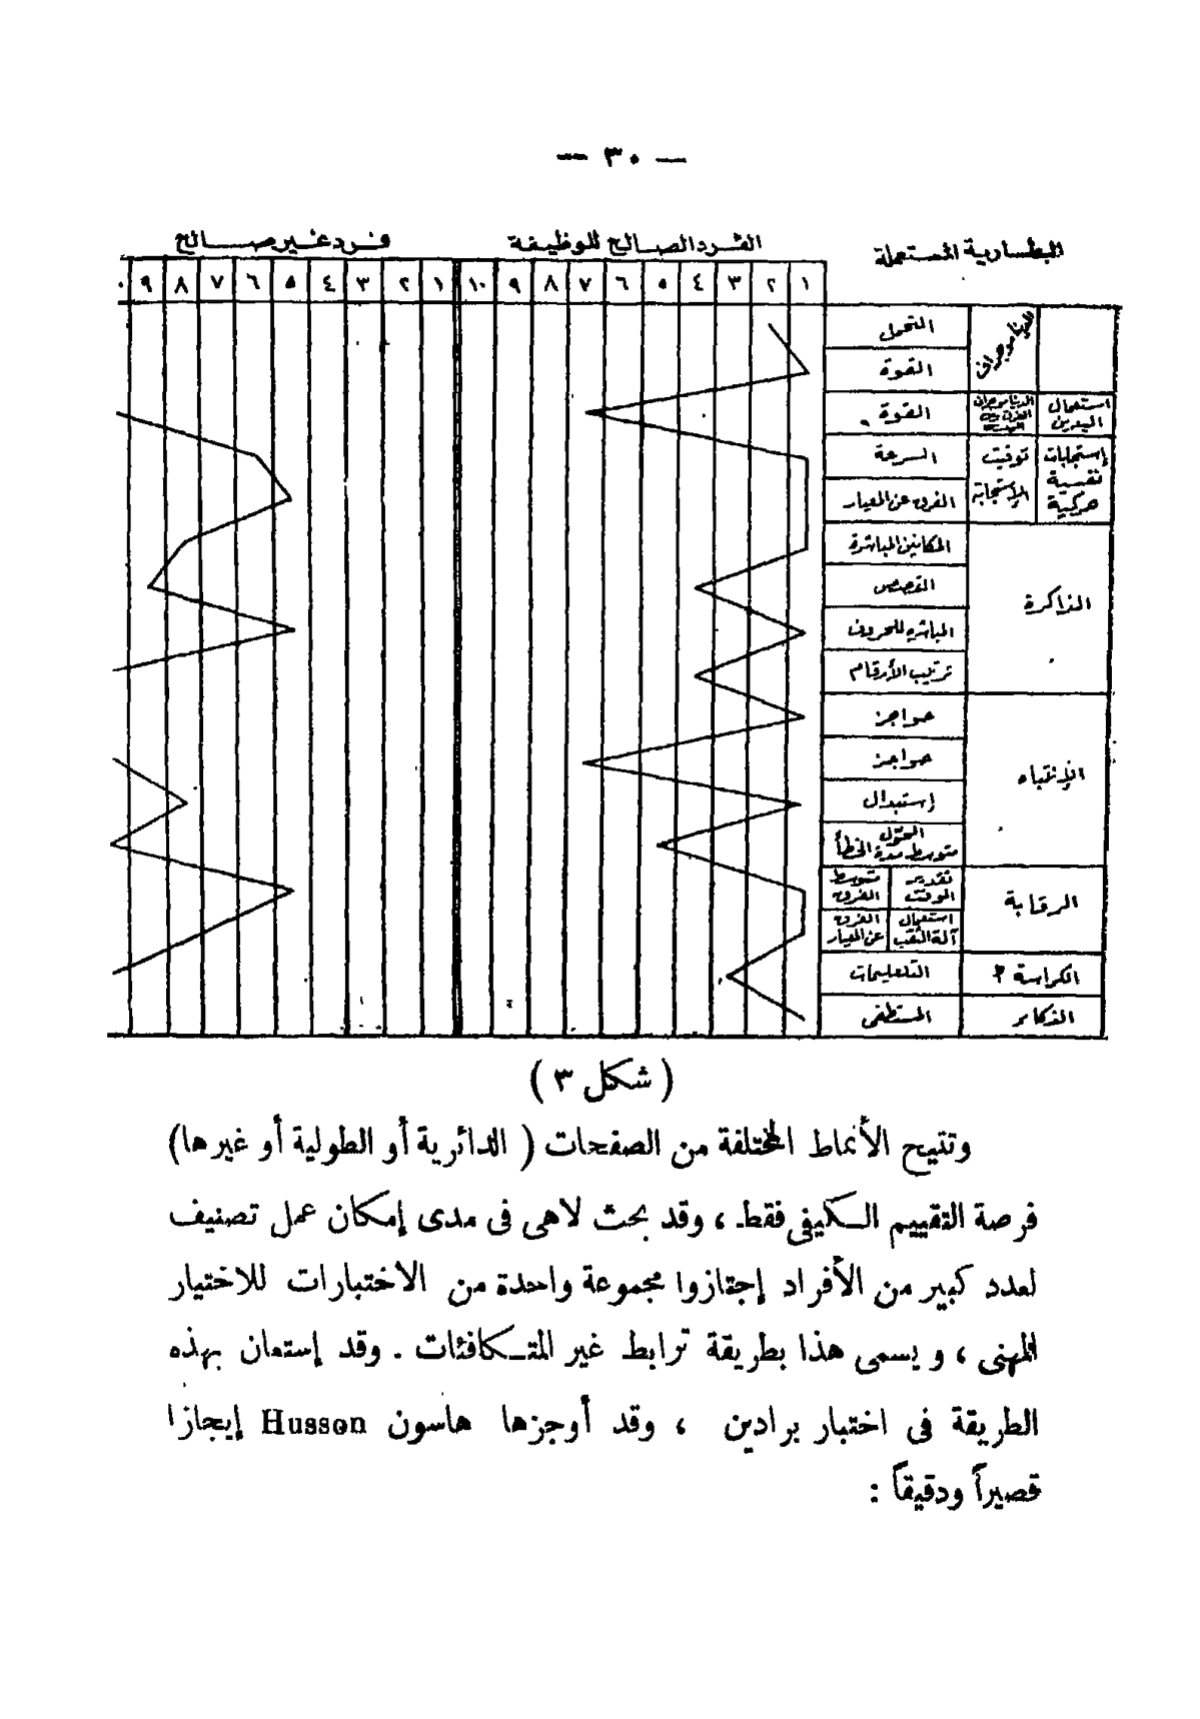 — ٣٠ —
البطارية المستعملة الفرد الصالح للوظيفة فرد غير صالح
١ ٢ ٣ ٤ ٥ ٦ ٧ ٨ ٩ ١٠ ١ ٢ ٣ ٤ ٥ ٦ ٧ ٨ ٩ ٠
الديناموجراف التحمل
القوة
استعمال اليدين القوة
إستجابات نفسية حركية توقيت الاستجابة السرعة
الفرق عن المعيار
الذاكرة المكانين المباشرة
القصص
المباشرة للحروف
ترتيب الأرقام
الإنتباه حواجز
حواجز
إستبدال
المحول متوسط مدة الخطأ
الرقابة تقدير الوقت متوسط الفروق
استعمال آلة الثقب الفرق عن المعيار
الكراسة ٢ التعليمات
الذكاء المستطفى
( شكل ٣ )
وتتيح الأنماط المختلفة من الصفحات ( الدائرية أو الطولية أو غيرها)
فرصة التقييم الكيفى فقط ، وقد بحث لاهى فى مدى إمكان عمل تصنيف
لعدد كبير من الأفراد إجتازوا مجموعة واحدة من الاختبارات للاختيار
المهنى ، ويسمى هذا بطريقة ترابط غير المتكافئات . وقد إستعان بهذه
الطريقة فى اختبار برادين ، وقد أوجزها هاسون Husson إيجازا
قصيراً ودقيقاً :